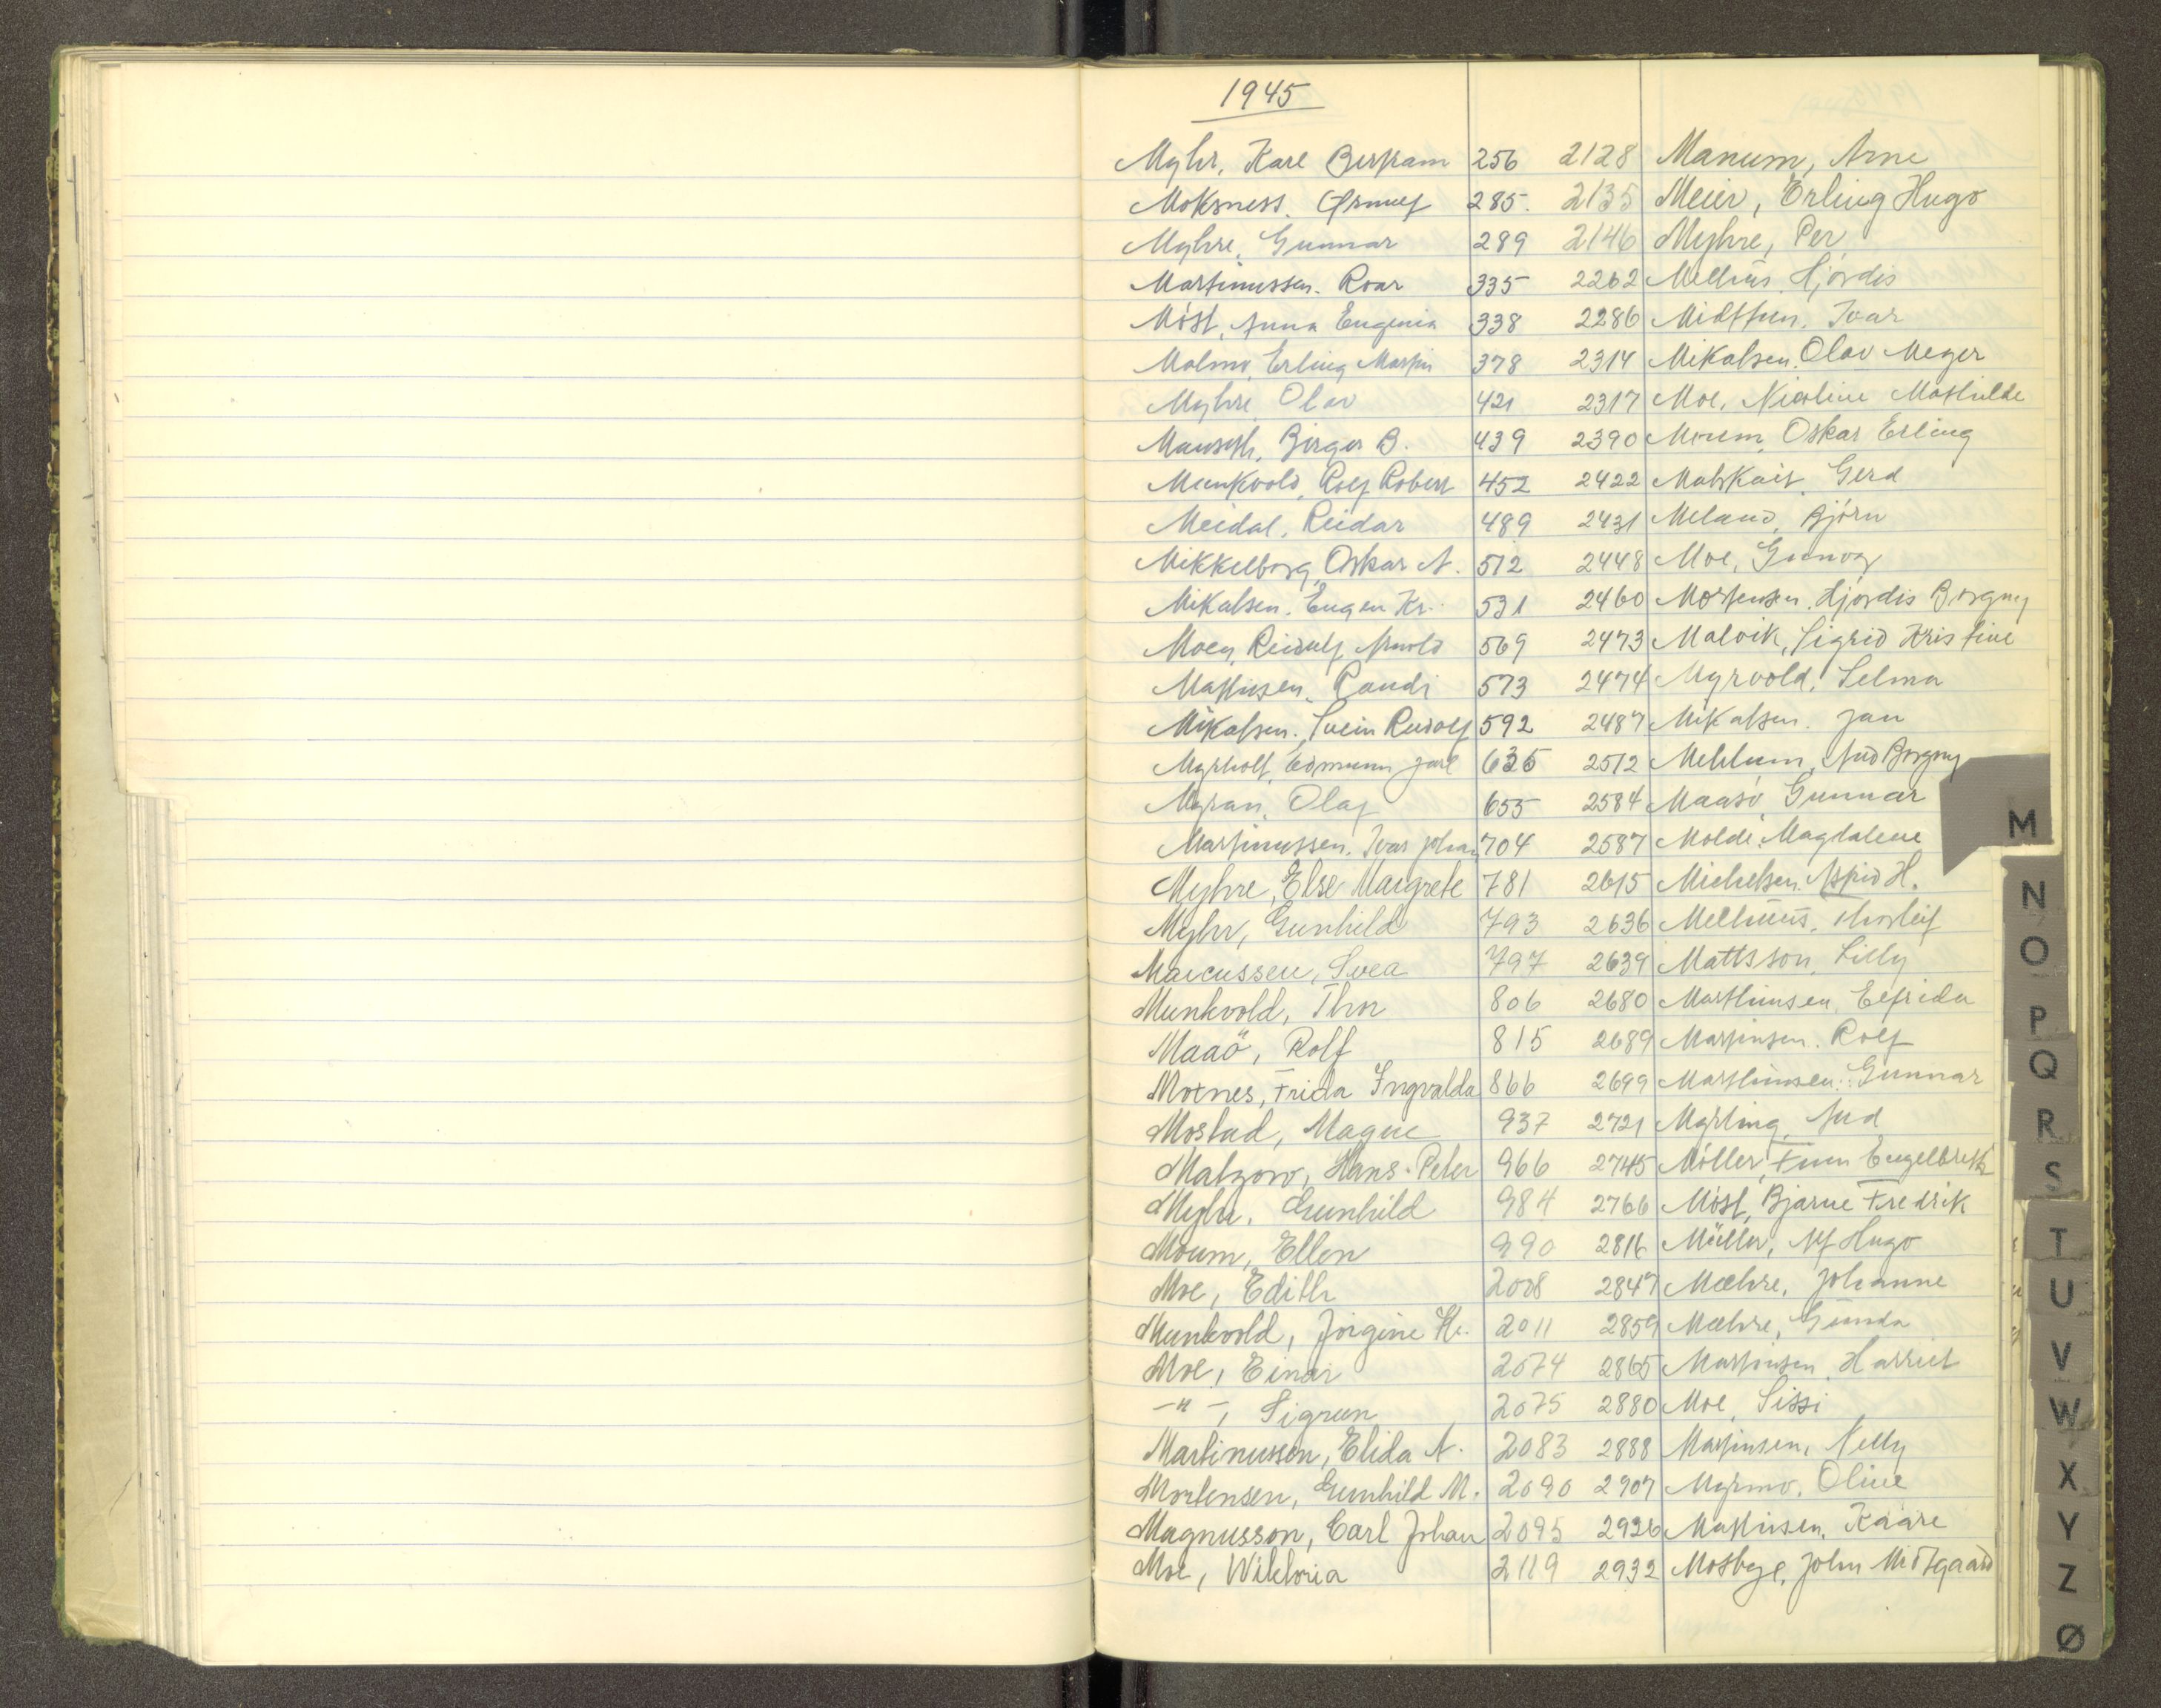 1945
Myhr, Kare Bertram 256 2128 Manum, Arne
Moksness. Ørnulf 285. 2135 Meier, Erling Hugo
Myhre, Gunnar 289 2146 Myhre, Per
Martinussen. Roar 335 2262 Melhus. Hjørdis
Møst, Anna Eugenia 338 2286 Midttun. Ivar
Malmo, Erling Martin 378 2314 Mikalsen. Olav Meyer
Myhre Olav 421 2317 Moe. Nicoline Mathilde
Mauseth, Birger B. 439 2390 Moum, Oskar Erling
Munkvold, Rolf Robert 452 2422 Malskait, Gerd
Meidal, Reidar 489 2431 Meland, Bjørn
Mikkelborg, Oskar A. 512 2448 Moe, Gunvor
Mikalsen. Eugen Kr. 531 2460 Mortensen. Hjørdis Borgny
Moen, Reidulf Arnold 569 2473 Malvik, Sigrid Kristine
Mathisen, Randi 573 2474 Myrvold, Selma
Mikalsen. Svein Rudolf 592 2487 Mikalsen. Jan
Myrholt, Edmunn Jarl 635 2512 Mehlum, Aud Borgny
Myran, Olaf 655 2584 Maasø, Gunnar
Martinussen. Ivar Johan 704 2587 Molde. Magdalene
Myhre, Else Margrete 781 2615 Michelsen. Astrid H.
Myhr, Gunhild 793 2636 Melhuus. Thorleif
Marcussen, Svea 797 2639 Mattsson, Lilly
Munkvold, Thor 806 2680 Marthinsen, Elfrida
Maaö, Rolf 815 2689 Martinsen. Rolf
Motnes, Frida Ingvalda 866 2699 Marthinsen. Gunnar
Mostad, Magne 937 2721 Myrling, Aud
Matzow, Hans-Peter 966 2745 Möller, Finn Engelbrekt
Myhr, Gunhild 984 2766 Møst, Bjarne Fredrik
Moum, Ellen 990 2816 Müller, Alf Hugo
Moe, Edith 2008 2847 Mæhre, Johanne
Munkvold, Jörgine Kr. 2011 2859 Mæhre, Gunda
Moe, Einar 2074 2865 Martinsen, Harriet
-"-, Sigrun 2075 2880 Moe, Sissi
Martinussen, Elida A. 2083 2888 Martinsen, Nelly
Mortensen, Gunhild M. 2090 2907 Myrmo, Oline
Magnusson, Carl Johan 2095 2926 Mathisen, Kaare
Moe, Wiktoria 2119 2932 Mosbye, John Midtgaard
M
N
O
P
Q
R
S
T
U
V
W
X
Y
Z
Ø